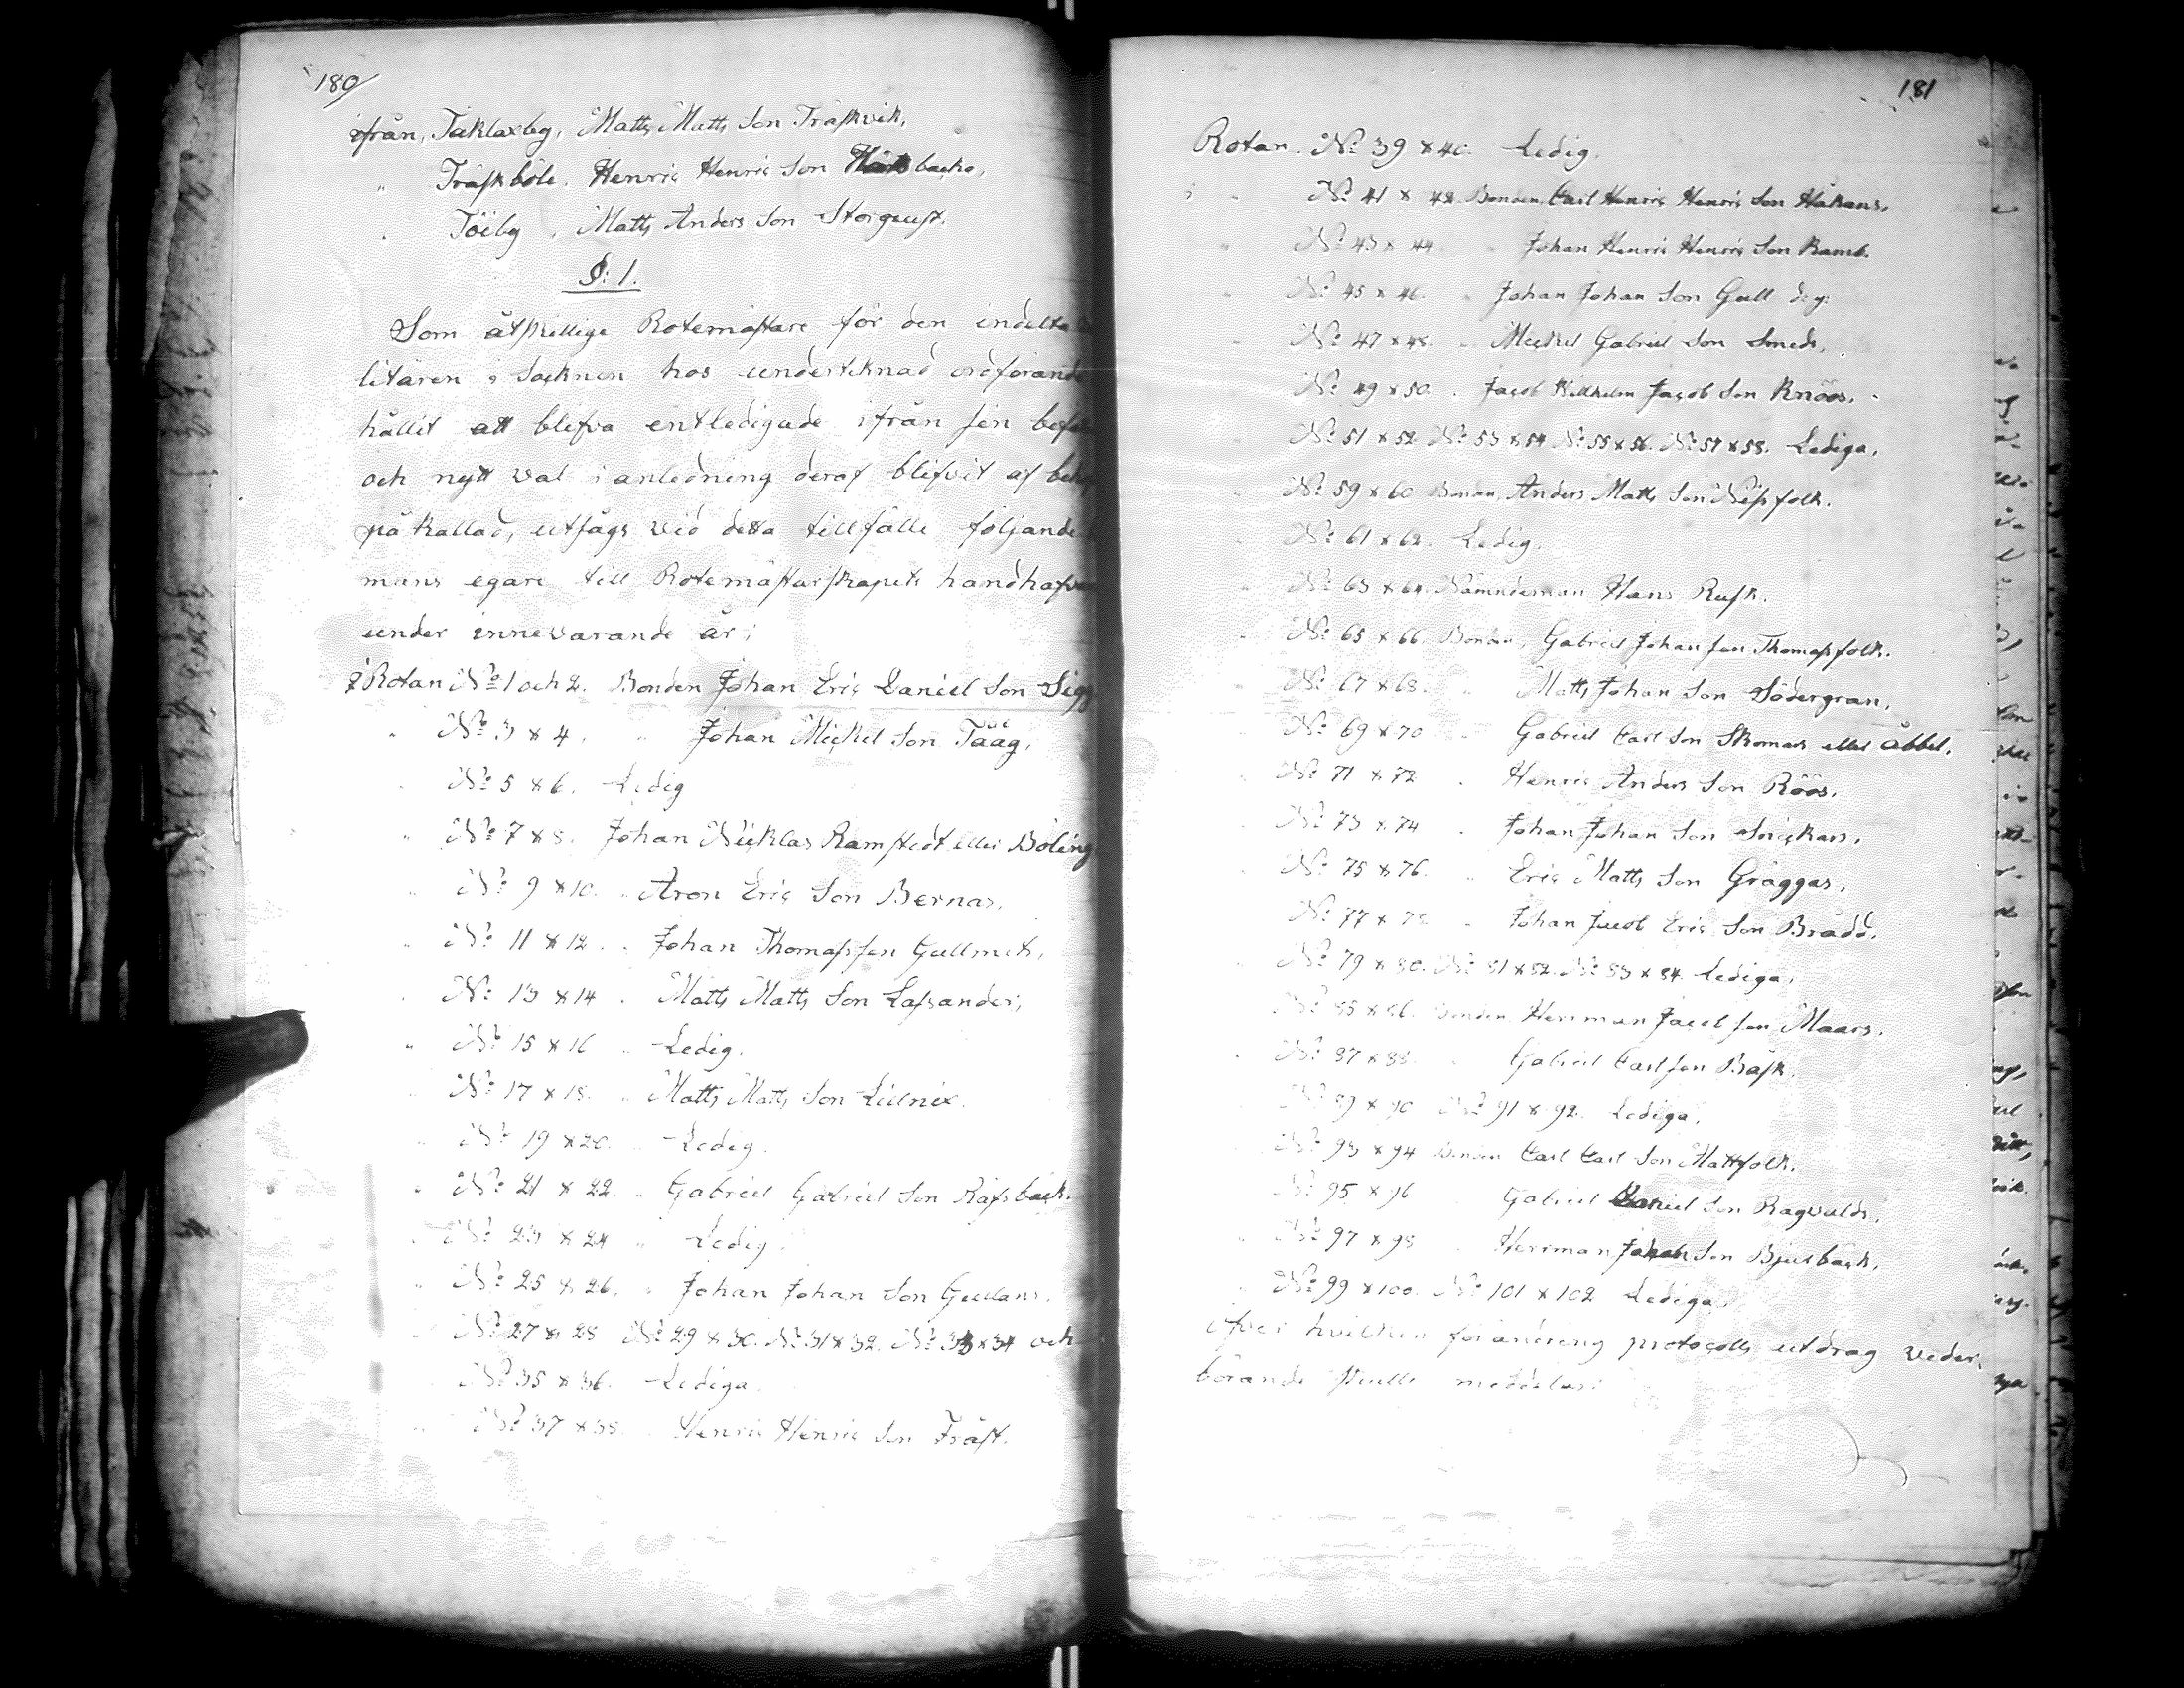 180
ifrån, Taklaxby, Matts Matts Son Träskvik,
" Träskböle, Henric Henric Son backa,
Töiby, Matts Anders Son Storgust.
§: 1.
Som åtskillige Rotemästare för den indelta
litären i Socknen hos undertecknad ordförande
hållit att blifva entledigade ifrån sin befa
och nytt val i anledning deraf blifvit af beh
påkallad, utsågs vid detta tillfälle följande
mans egare till Rotemästarskapets handhafva
under innevarande år;
i Rotan N:o 1 och 2. Bonden Johan Eric Daniel Son Sigg
" N:o 3 & 4. " Johan Mickel Son Tääg.
" N:o 5 & 6. Ledig
" N:o 7 & 8. Johan Nicklas Ramstedt eller Böling
" N:o 9 & 10. " Aron Eric Son Bernas.
" N:o 11 & 12. " Johan Thomasson Gullmets,
" N:o 13 & 14 " Matts Matts Son Lassander,
" N:o 15 & 16 " Ledig.
" N:o 17 & 18. " Matts Matts Son Lillnix.
" N:o 19 & 20. " Ledig.
" N:o 21 & 22. " Gabriel Gabriel Son Räfsback.
" N:o 23 & 24 " Ledig.
" N:o 25 & 26. " Johan Johan Son Gullans.
" N:o 27 & 28 N:o 29 & 30. N:o 31 & 32. N:o 33 & 34 och
N:o 35 & 36. Lediga.
" N:o 37 & 38. " Henric Henric Son Träsk.
181
Rotan. N:o 39 & 40. Ledig.
" N:o 41 & 42. Bonden, Carl Henric Henric Son Håkans,
" N:o 43 & 44 " Johan Henric Henric Son Ramb.
" N:o 45 & 46. " Johan Johan Son Gull
" N:o 47 & 48. " Mickel Gabriel Son Smeds,
" N:o 49 & 50. " Jacob Wilhelm Jacob Son Knöös.
" N:o 51 & 52 N:o 53 & 54 N:o 55 & 56. N:o 57 & 58. Lediga,
" N:o 59 & 60 Bonden, Anders Matts Son Nissfolk.
" N:o 61 & 62. Ledig.
" N:o 63 & 64. Nämndeman Hans Rusk.
" N:o 65 & 66. Bonden, Gabriel Johan son Thomasfolk.
" N:o 67 & 68. " Matts Johan Son Södergran,
" N:o 69 & 70 " Gabriel Carl Son Skomars eller Åbbel,
" N:o 71 & 72 " Henric Anders Son Röös.
" N:o 73 & 74 " Johan Johan Son Snickars,
" N:o 75 & 76. " Eric Matts Son Gräggas,
" N:o 77 & 78 " Johan Jacob Eric Son Brädd.
" N:o 79 & 80. N:o 81 & 82. N:o 83 & 84. Lediga,
" N:o 85 & 86. Bonden Herrman Jacob son Maars.
" N:o 87 & 88. " Gabriel Carl son Bäsk.
" N:o 89 & 90 N:o 91 & 92. Lediga.
N:o 93 & 94 Bonden Carl Carl Son Mattsfolk.
N:o 95 & 96 Gabriel Daniel Son Ragvalds,
" N:o 97 & 98 " Herrman Jakob Son Bjusback,
" N:o 99 & 100. N:o 101 & 102 Lediga.
öfver hvilken förändring protocolls utdrag veder,
börande skulle meddelas: